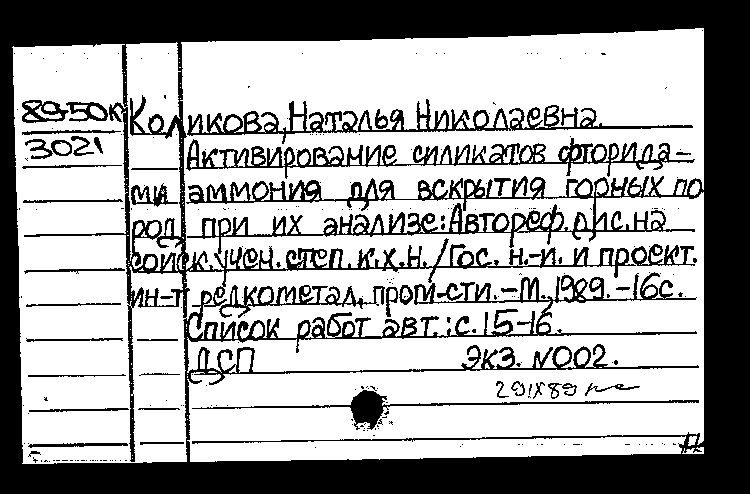 89-50к Коликова, Наталья Николаевна.
3021 Активирование силикатов фторида-
ми аммония для вскрытия горных по
род при их анализе: Автореф. дис. на
соиск. учен. степ. к.х.н. / Гос. н.-и. и проект.
ин-т редкометал. пром-сти. – М., 1989. – 16с.
Список работ авт.: с. 15-16.
ДСП ЭКЗ. N002.
29IX89